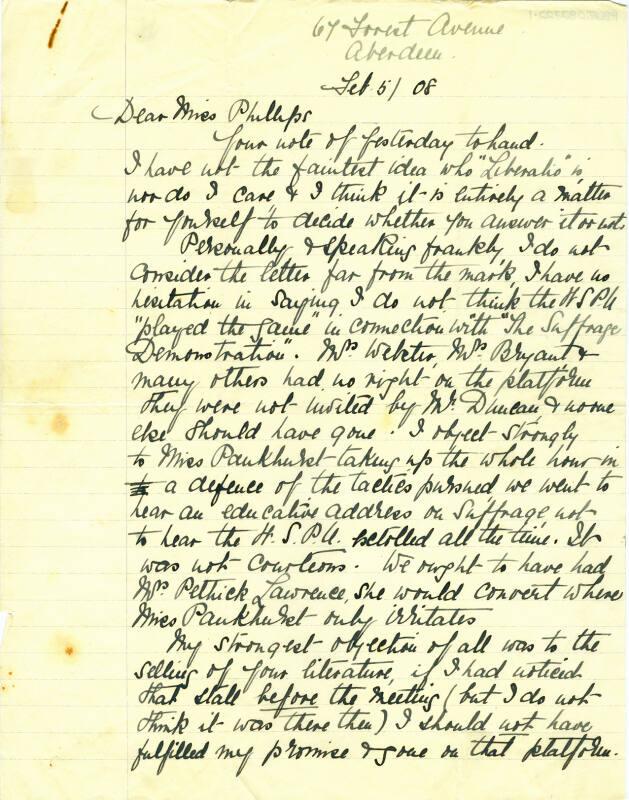 67 Forest Avenue
Aberdeen.
Feb 5/ 08
Dear Miss Phillips
Your note of yesterday to hand.
I have not the faintest idea who "Liberatio" is,
nor do I care & I think it is entirely a matter
for yourself to decide whether you answer it or not.
Personally & speaking frankly, I do not
consider the letter far from the mark, I have no
hesitation in saying I do not think the W.S.P.U
"played the game" in connection with "The Suffrage
Demonstration". Mrs Webster, Mrs Bryant &
many others had no right on the platform
they were not invited by Mr Duncan & no one
else should have gone. I object strongly
to Miss Pankhurst taking up the whole hour in
a defence of the tactics pursued we went to
hear an educative address on Suffrage not
to hear the W.S.P.U. extolled all the time. It
was not courteous. We ought to have had
Mrs Pethick Lawrence, she would convert where
Miss Pankhurst only irritates
My strongest objection of all was to the
selling of your literature, if I had noticed
that stall before the meeting (but I do not
think it was there then) I should not have
fulfilled my promise & gone on that platform.